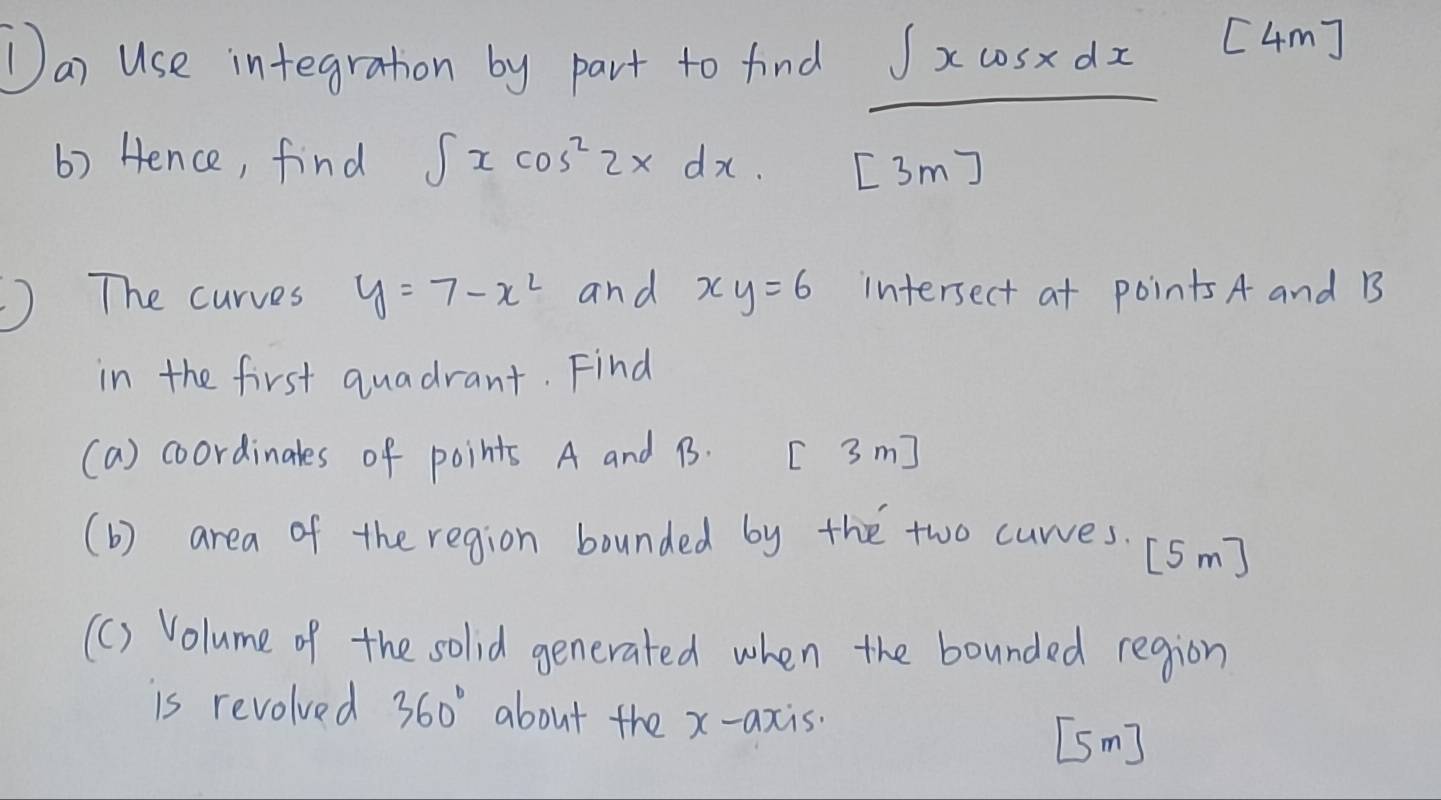 1) a) Use integration by part to find ∫ x cos x dx [4m]
b) Hence, find ∫ x cos² 2x dx. [3m]
) The curves y = 7 - x² and xy = 6 intersect at points A and B
in the first quadrant. Find
(a) coordinates of points A and B. [3m]
(b) area of the region bounded by the two curves. [5m]
(c) Volume of the solid generated when the bounded region
is revolved 360° about the x-axis.
[5m]